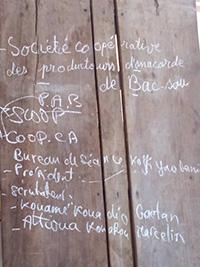 - Société coopérative
des producteurs d'anacarde
de Bac-sou
P.A.B
SCOOP
COOP.CA
Bureau de Séance Koffi Yao
- Président:
- Scrutateur:
- Kouamé Koua dio Gaetan
- Attioua Konakou Marcelin